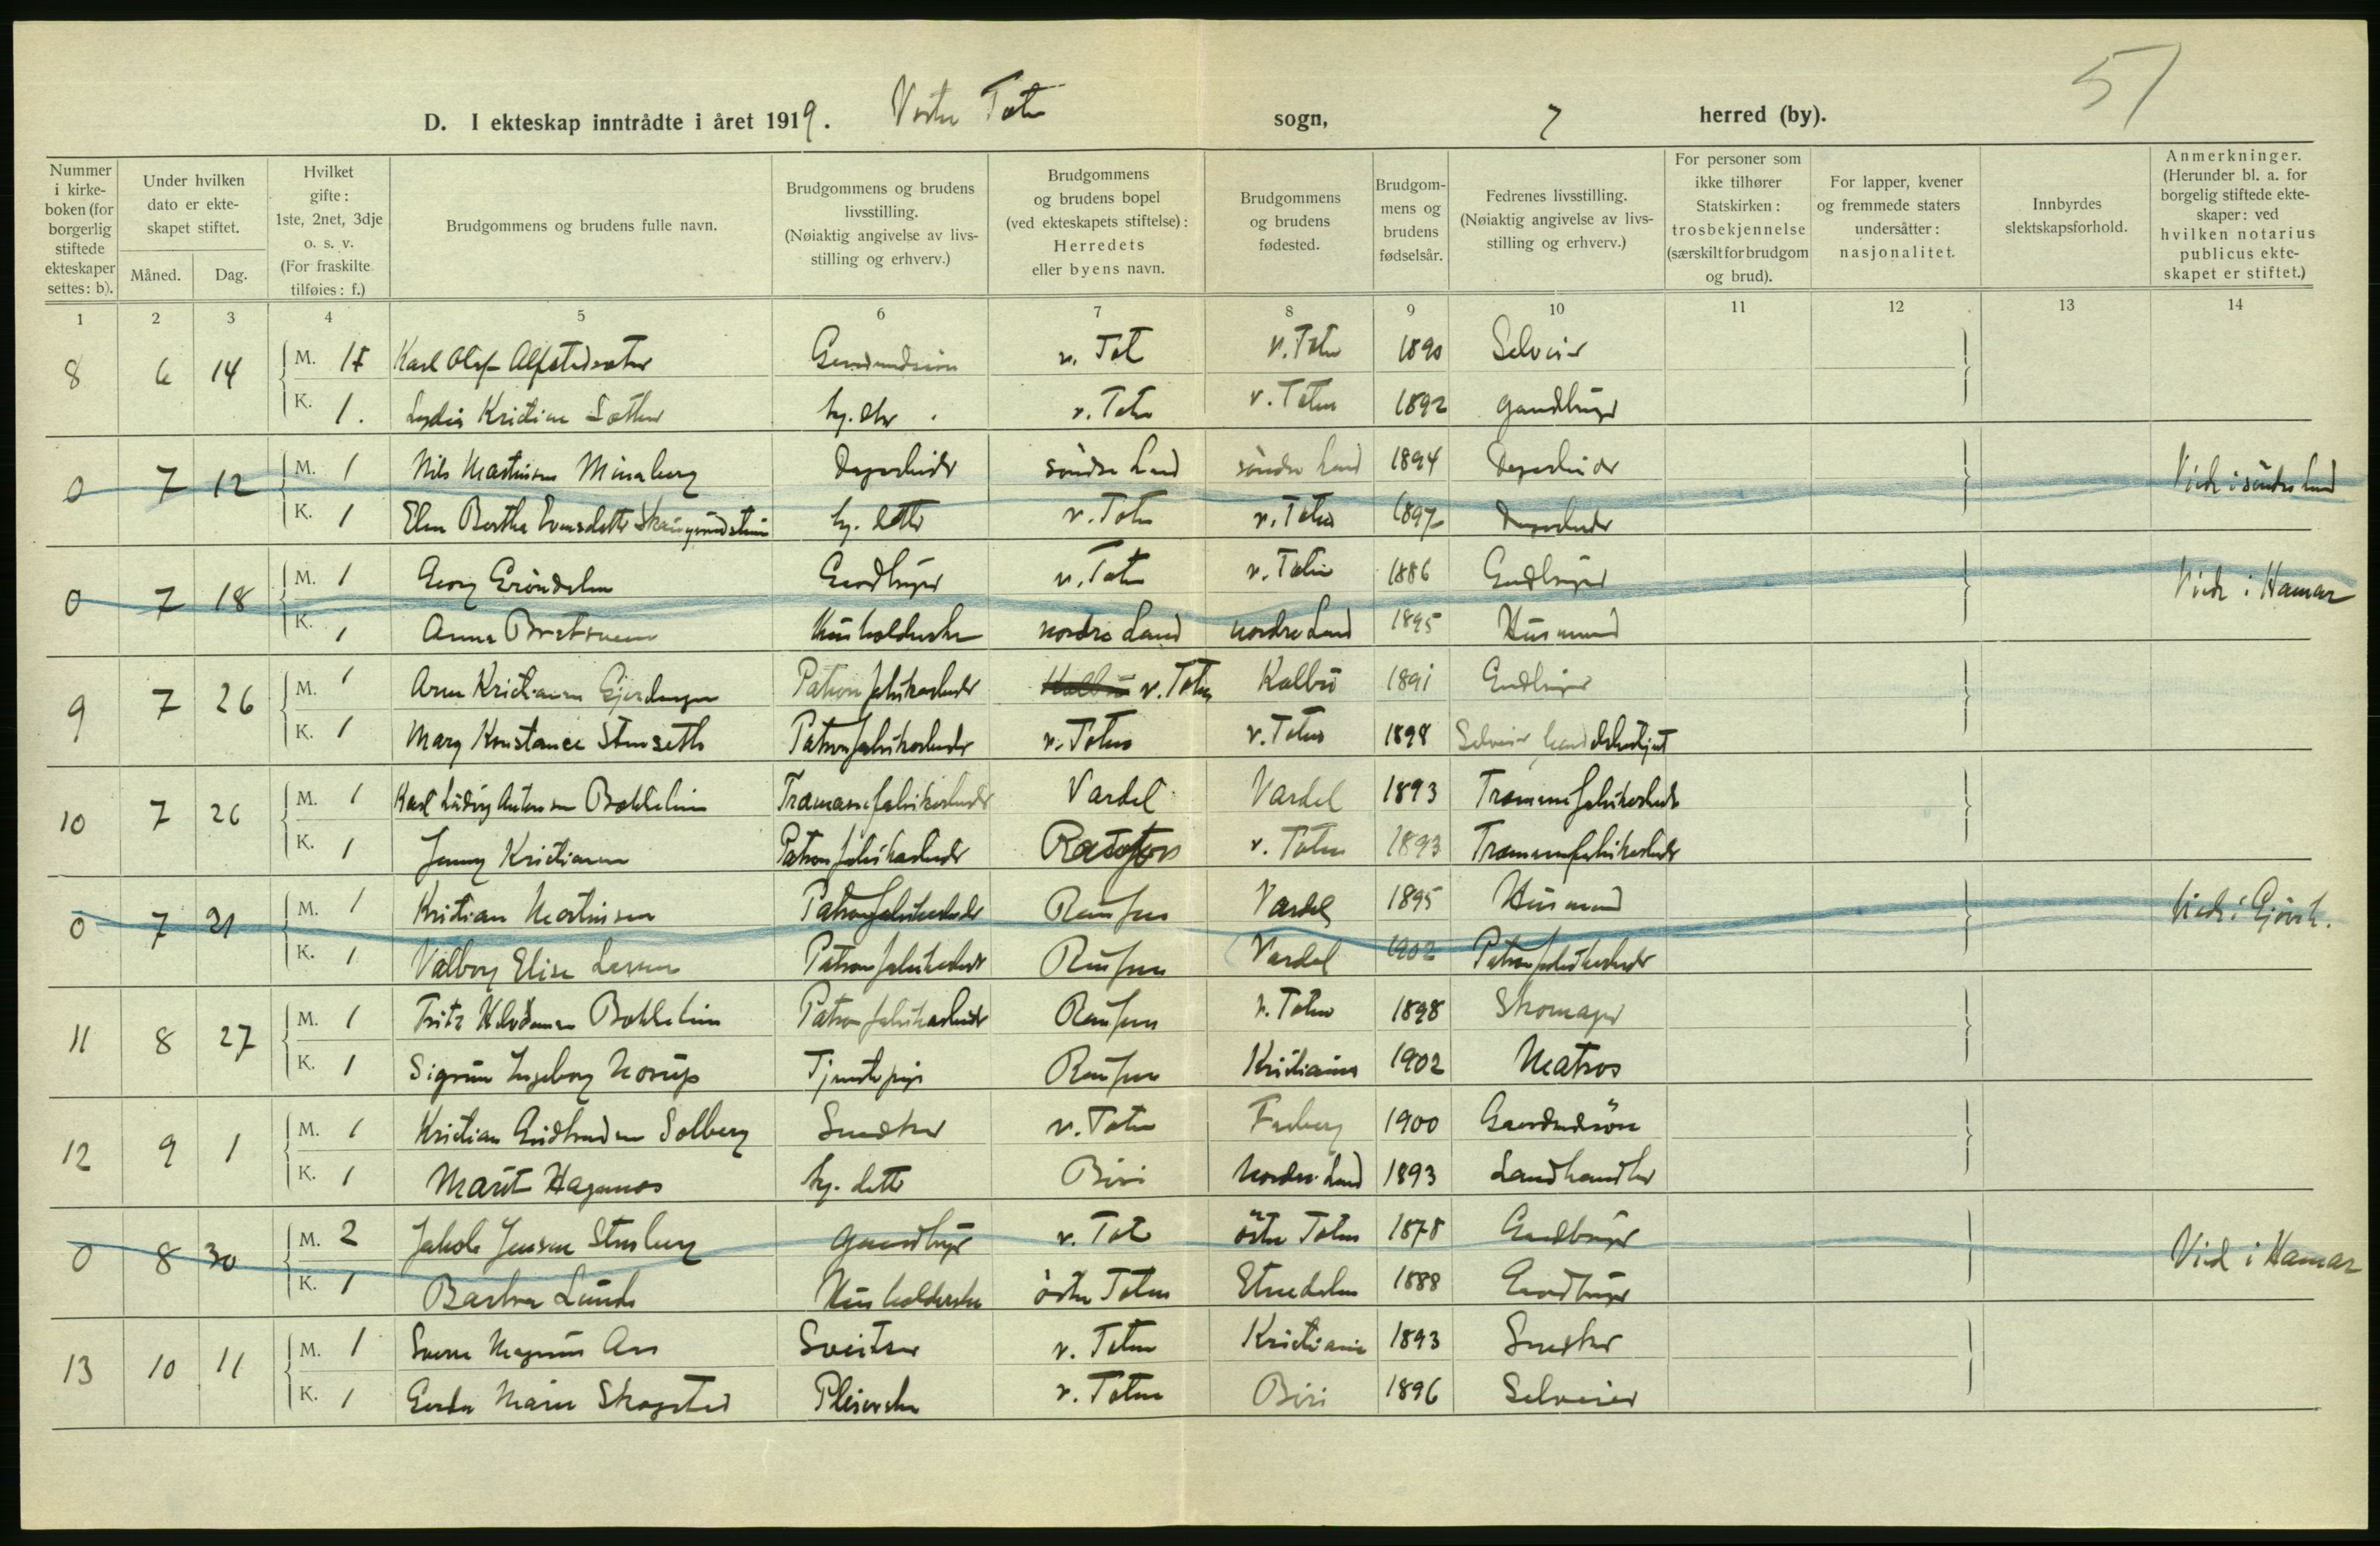 57
D. I ekteskap inntrådte i året 1919. Vestre Toten sogn, 7 herred (by).
Nummer i kirkeboken (for borgerlig stiftede ekteskaper settes: b).
Under hvilken dato er ekteskapet stiftet.
Måned. Dag.
Hvilket gifte: 1ste, 2net, 3dje o. s. v. (For fraskilte tilføies: f.)
Brudgommens og brudens fulle navn.
Brudgommens og brudens livsstilling. (Nøiaktig angivelse av livsstilling og erhverv.)
Brudgommens og brudens bopel (ved ekteskapets stiftelse): Herredets eller byens navn.
Brudgommens og brudens fødested.
Brudgommens og brudens fødselsår.
Fedrenes livsstilling. (Nøiaktig angivelse av livsstilling og erhverv.)
For personer som ikke tilhører Statskirken: trosbekjennelse (særskilt for brudgom og brud).
For lapper, kvener og fremmede staters undersåtter: nasjonalitet.
Innbyrdes slektskapsforhold.
Anmerkninger. (Herunder bl. a. for borgelig stiftede ekteskaper: ved hvilken notarius publicus ekteskapet er stiftet.)
1 2 3 4 5 6 7 8 9 10 11 12 13 14
8 6 14 M. Karl Olaf v. Toten 1890 Selveier
K. 1. Kristine v. Toten v. Toten 1892 Gaardbruger
0 7 12 M. 1 Nils Martinsen Dagarbeider søndre Land søndre Land 1894 Dagarbeider Viede i søndre Land
K. 1 hj. datter v. Toten v. Toten 1897 Dagarbeider
0 7 18 M. 1 Georg Gaardbruger v. Toten v. Toten 1886 Gaardbruger Viede i Hamar
K. 1 Anna Husholderske nordre Land nordre Land 1895 Husmand
9 7 26 M. 1 Patronfabrikarbeider v. Toten Kolbu 1891 Gaardbruger
K. 1 Mary Konstance Stenseth Patronfabrikarbeider v. Toten v. Toten 1898 Selveier
10 7 26 M. 1 Karl Ludvig Antonsen Træmassefabrikarbeider Vardal Vardal 1893 Træmassefabrikarbeider
K. 1 Jenny Kristiansen Patronfabrikarbeider Raufoss v. Toten 1893 Træmassefabrikarbeider
0 7 31 M. 1 Kristian Martinsen Patronfabrikarbeider Raufoss Vardal 1895 Husmand Viede i Gjøvik.
K. 1 Valborg Elise Larsen Patronfabrikarbeider Raufoss Vardal 1902 Patronfabrikarbeider
11 8 27 M. 1 Fritz Patronfabrikarbeider Raufoss v. Toten 1898 Skomager
K. 1 Sigrun Ingeborg Norup Tjenestepige Raufoss Kristiania 1902 Matros
12 9 1 M. 1 Kristian Gudbrandsen Solberg Snedker v. Toten Faaberg 1900
K. 1 Marit Haganæs hj. datter Biri Nordre Land 1893 Landhandler
0 8 30 M. 2 Jakob Jensen Gaardbruger v. Toten østre Toten 1878 Gaardbruger Vied i Hamar
K. 1 Barbra Lunde Husholderske østre Toten Etnedalen 1888 Gaardbruger
13 10 11 M. 1 Sverre Magnus Aas Sveitser v. Toten Kristiania 1893 Snedker
K. 1 Gerda Marie Skogstad Pleierske v. Toten Biri 1896 Selveier